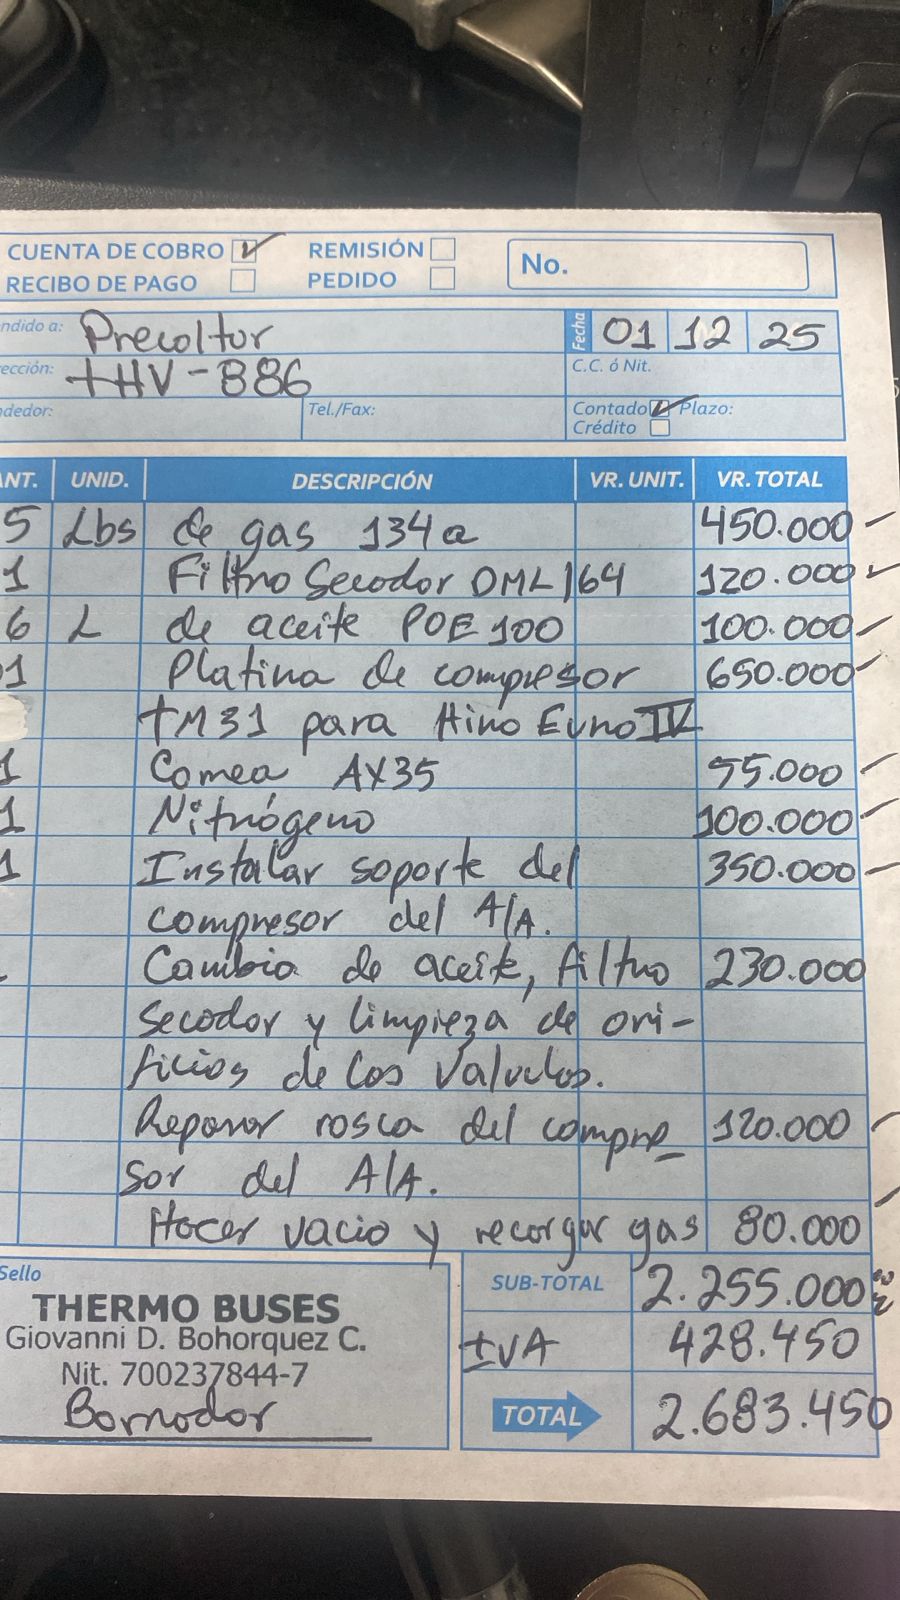 CUENTA DE COBRO ✓ REMISIÓN No.
RECIBO DE PAGO PEDIDO
ndido a: Precoltur Fecha 01 12 25
ección: THV-886 C.C. ó Nit.
dedor: Tel./Fax: Contado ✓ Plazo:
Crédito
ANT. UNID. DESCRIPCIÓN VR. UNIT. VR. TOTAL
5 Lbs de gas 134a 450.000
1 Filtro Secador DML 164 120.000
6 L de aceite POE 100 100.000
01 Platina de compresor 650.000
TM31 para Hino Euro IV
1 Correa AX35 55.000
1 Nitrógeno 100.000
1 Instalar soporte del 350.000
compresor del A/A.
Cambio de aceite, filtro 230.000
secador y limpieza de ori-
ficios de las valvulas.
Reparar rosca del compre 120.000
sor del A/A.
Hacer vacio y recargar gas 80.000
Sello SUB-TOTAL 2.255.000
THERMO BUSES
Giovanni D. Bohorquez C. IVA 428.450
Nit. 700237844-7
Borrador TOTAL 2.683.450